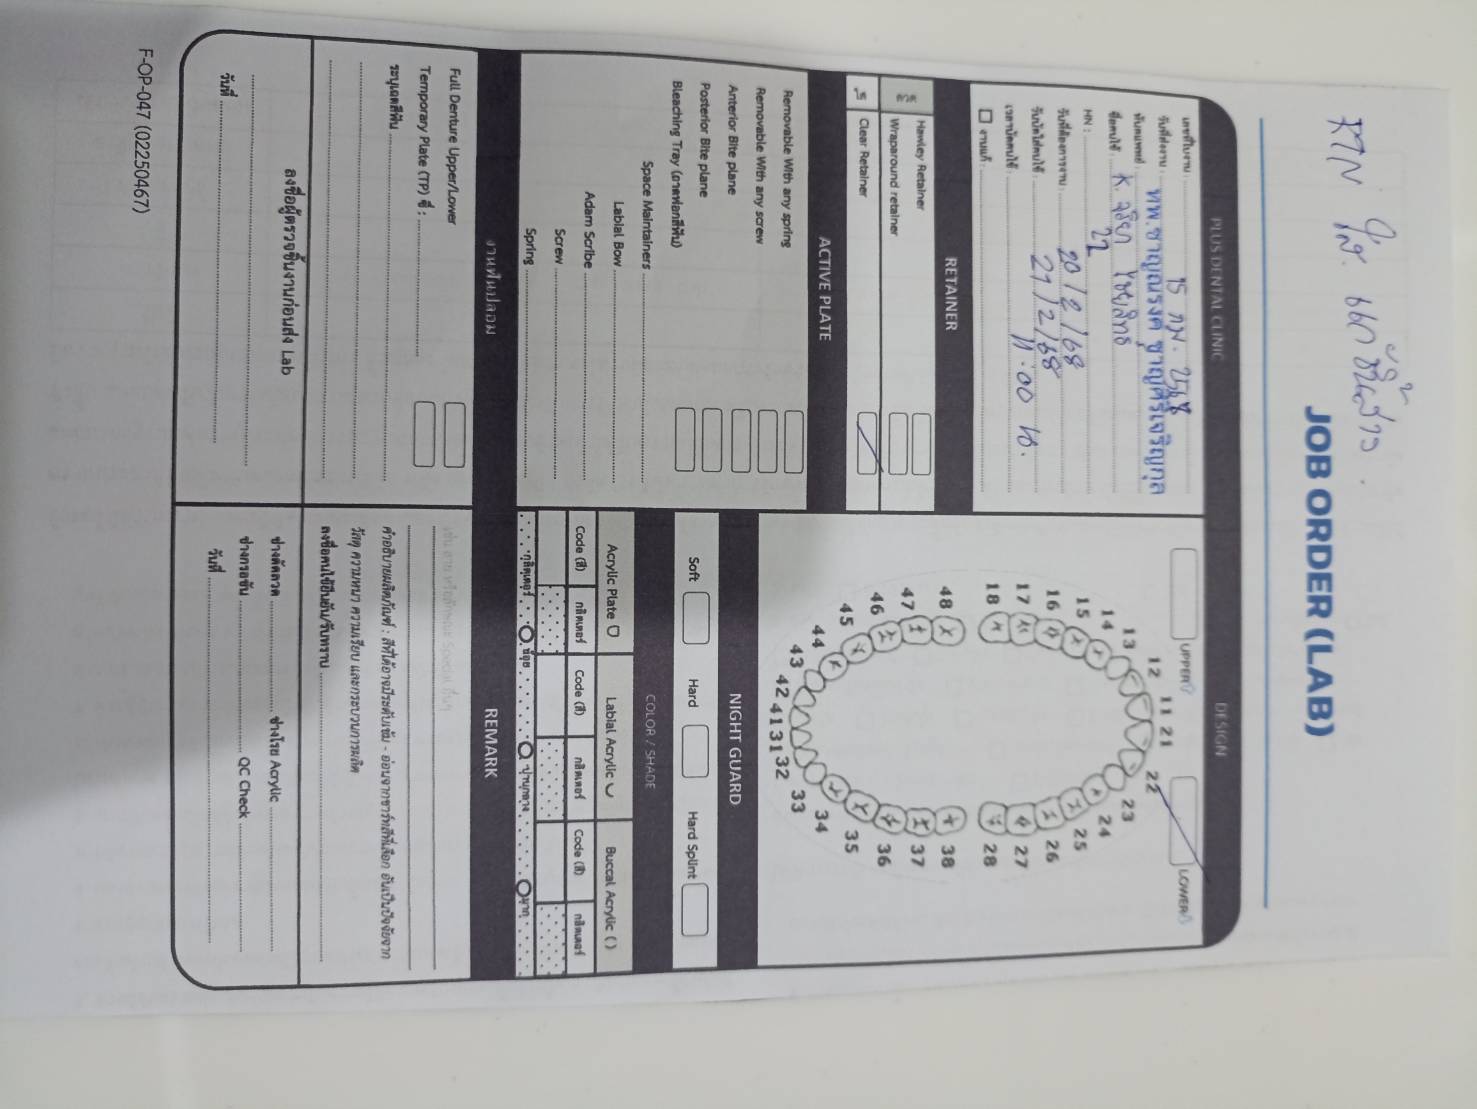 JOB ORDER (LAB)
PLUS DENTAL CLINIC
เลขที่ใบงาน
วันที่ส่งงาน 15 กพ. 2568
ทันตแพทย์ ทพ.ชาญณรงค์ ชาญศิริเจริญกุล
ชื่อคนไข้ K.
HN : 22
วันที่ต้องการงาน 20/2/68
วันนัดใส่คนไข้ 21/2/68
เวลานัดคนไข้ 11.00 น.
งานแก้
RETAINER
Hawley Retainer
Wraparound retainer
Clear Retainer
ACTIVE PLATE
Removable With any spring
Removable With any screw
Anterior Bite plane
Posterior Bite plane
Bleaching Tray (ถาดฟอกสีฟัน)
Space Maintainers
Labial Bow
Adam Scribe
Screw
Spring
งานฟันปลอม
Full Denture Upper/Lower
Temporary Plate (TP) ซี่ :
ระบุเฉดสีฟัน
ลงชื่อผู้ตรวจชิ้นงานก่อนส่ง Lab
วันที่
DESIGN
UPPER
LOWER
11 21
12 22
13 23
14 24
15 25
16 26
17 27
18 28
48 38
47 37
46 36
45 35
44 34
43 33
42 41 31 32
NIGHT GUARD
Soft Hard Hard Splint
COLOR / SHADE
Acrylic Plate Labial Acrylic Buccal Acrylic ( )
Code (สี) กลิตเตอร์ Code (สี) กลิตเตอร์ Code (สี) กลิตเตอร์
REMARK
คำอธิบายผลิตภัณฑ์ : สีที่ได้อาจมีระดับเข้ม - อ่อนจากชาร์ทสีที่เลือก อันเป็นปัจจัยจาก
วัสดุ ความหนา ความเรียบ และกระบวนการผลิต
ลงชื่อคนไข้ยืนยัน/รับทราบ
ช่างดัดลวด ช่างโรย Acrylic
ช่างกรอขัด QC Check
วันที่
F-OP-047 (02250467)